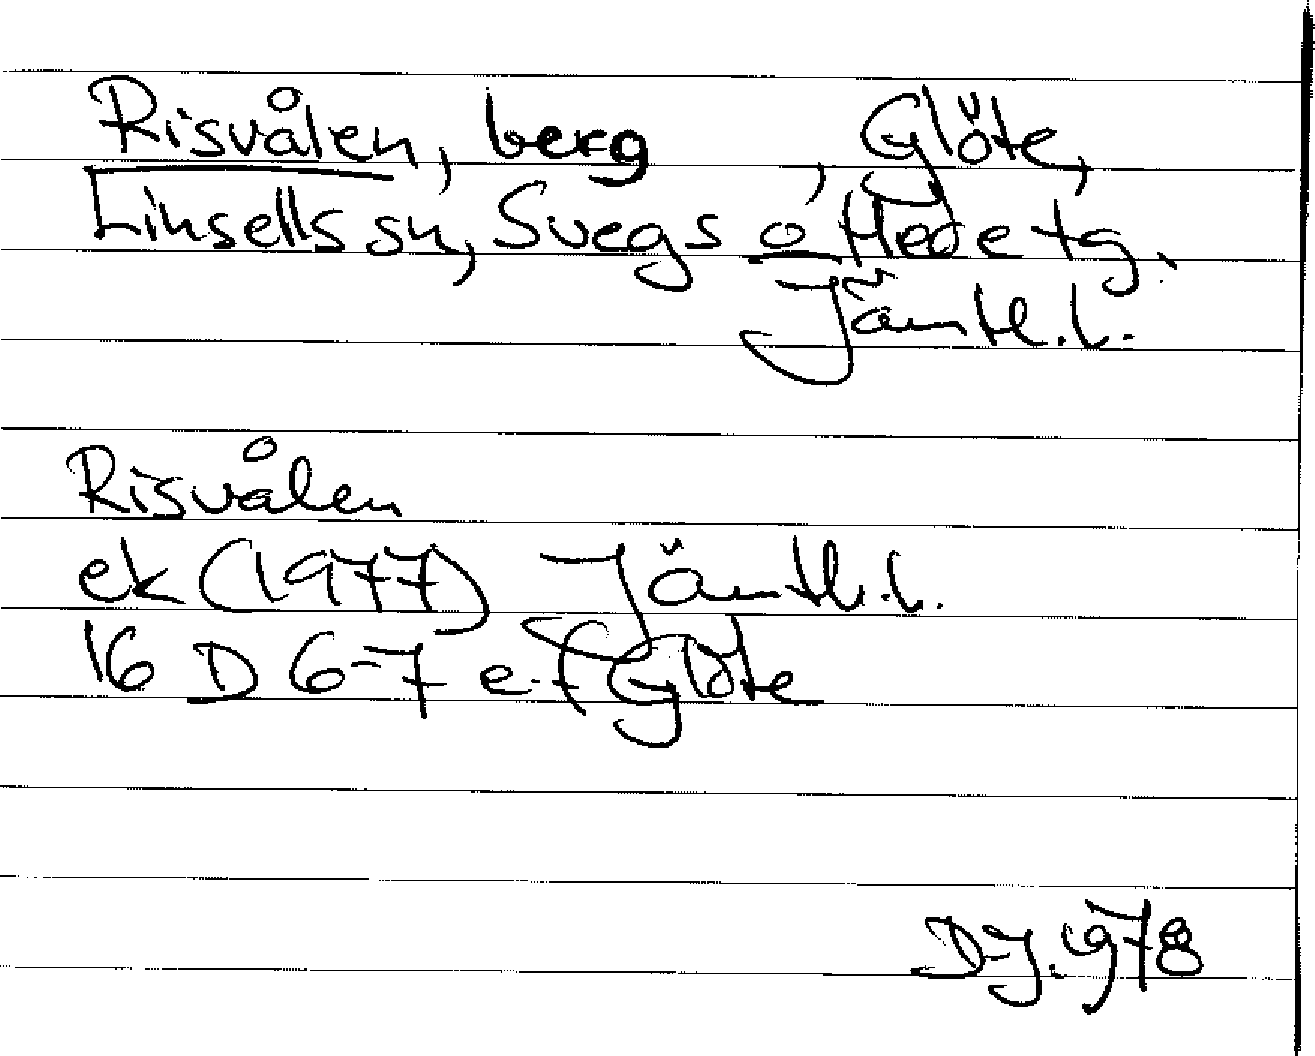 Risvålen, berg , Glöte,
Linsells sn, Svegs o Hede tg.
Jämtl.l.
Risvålen
ek (1977) Jämtl.l.
16 D 6-7 e-f Glöte
D.J. 1978